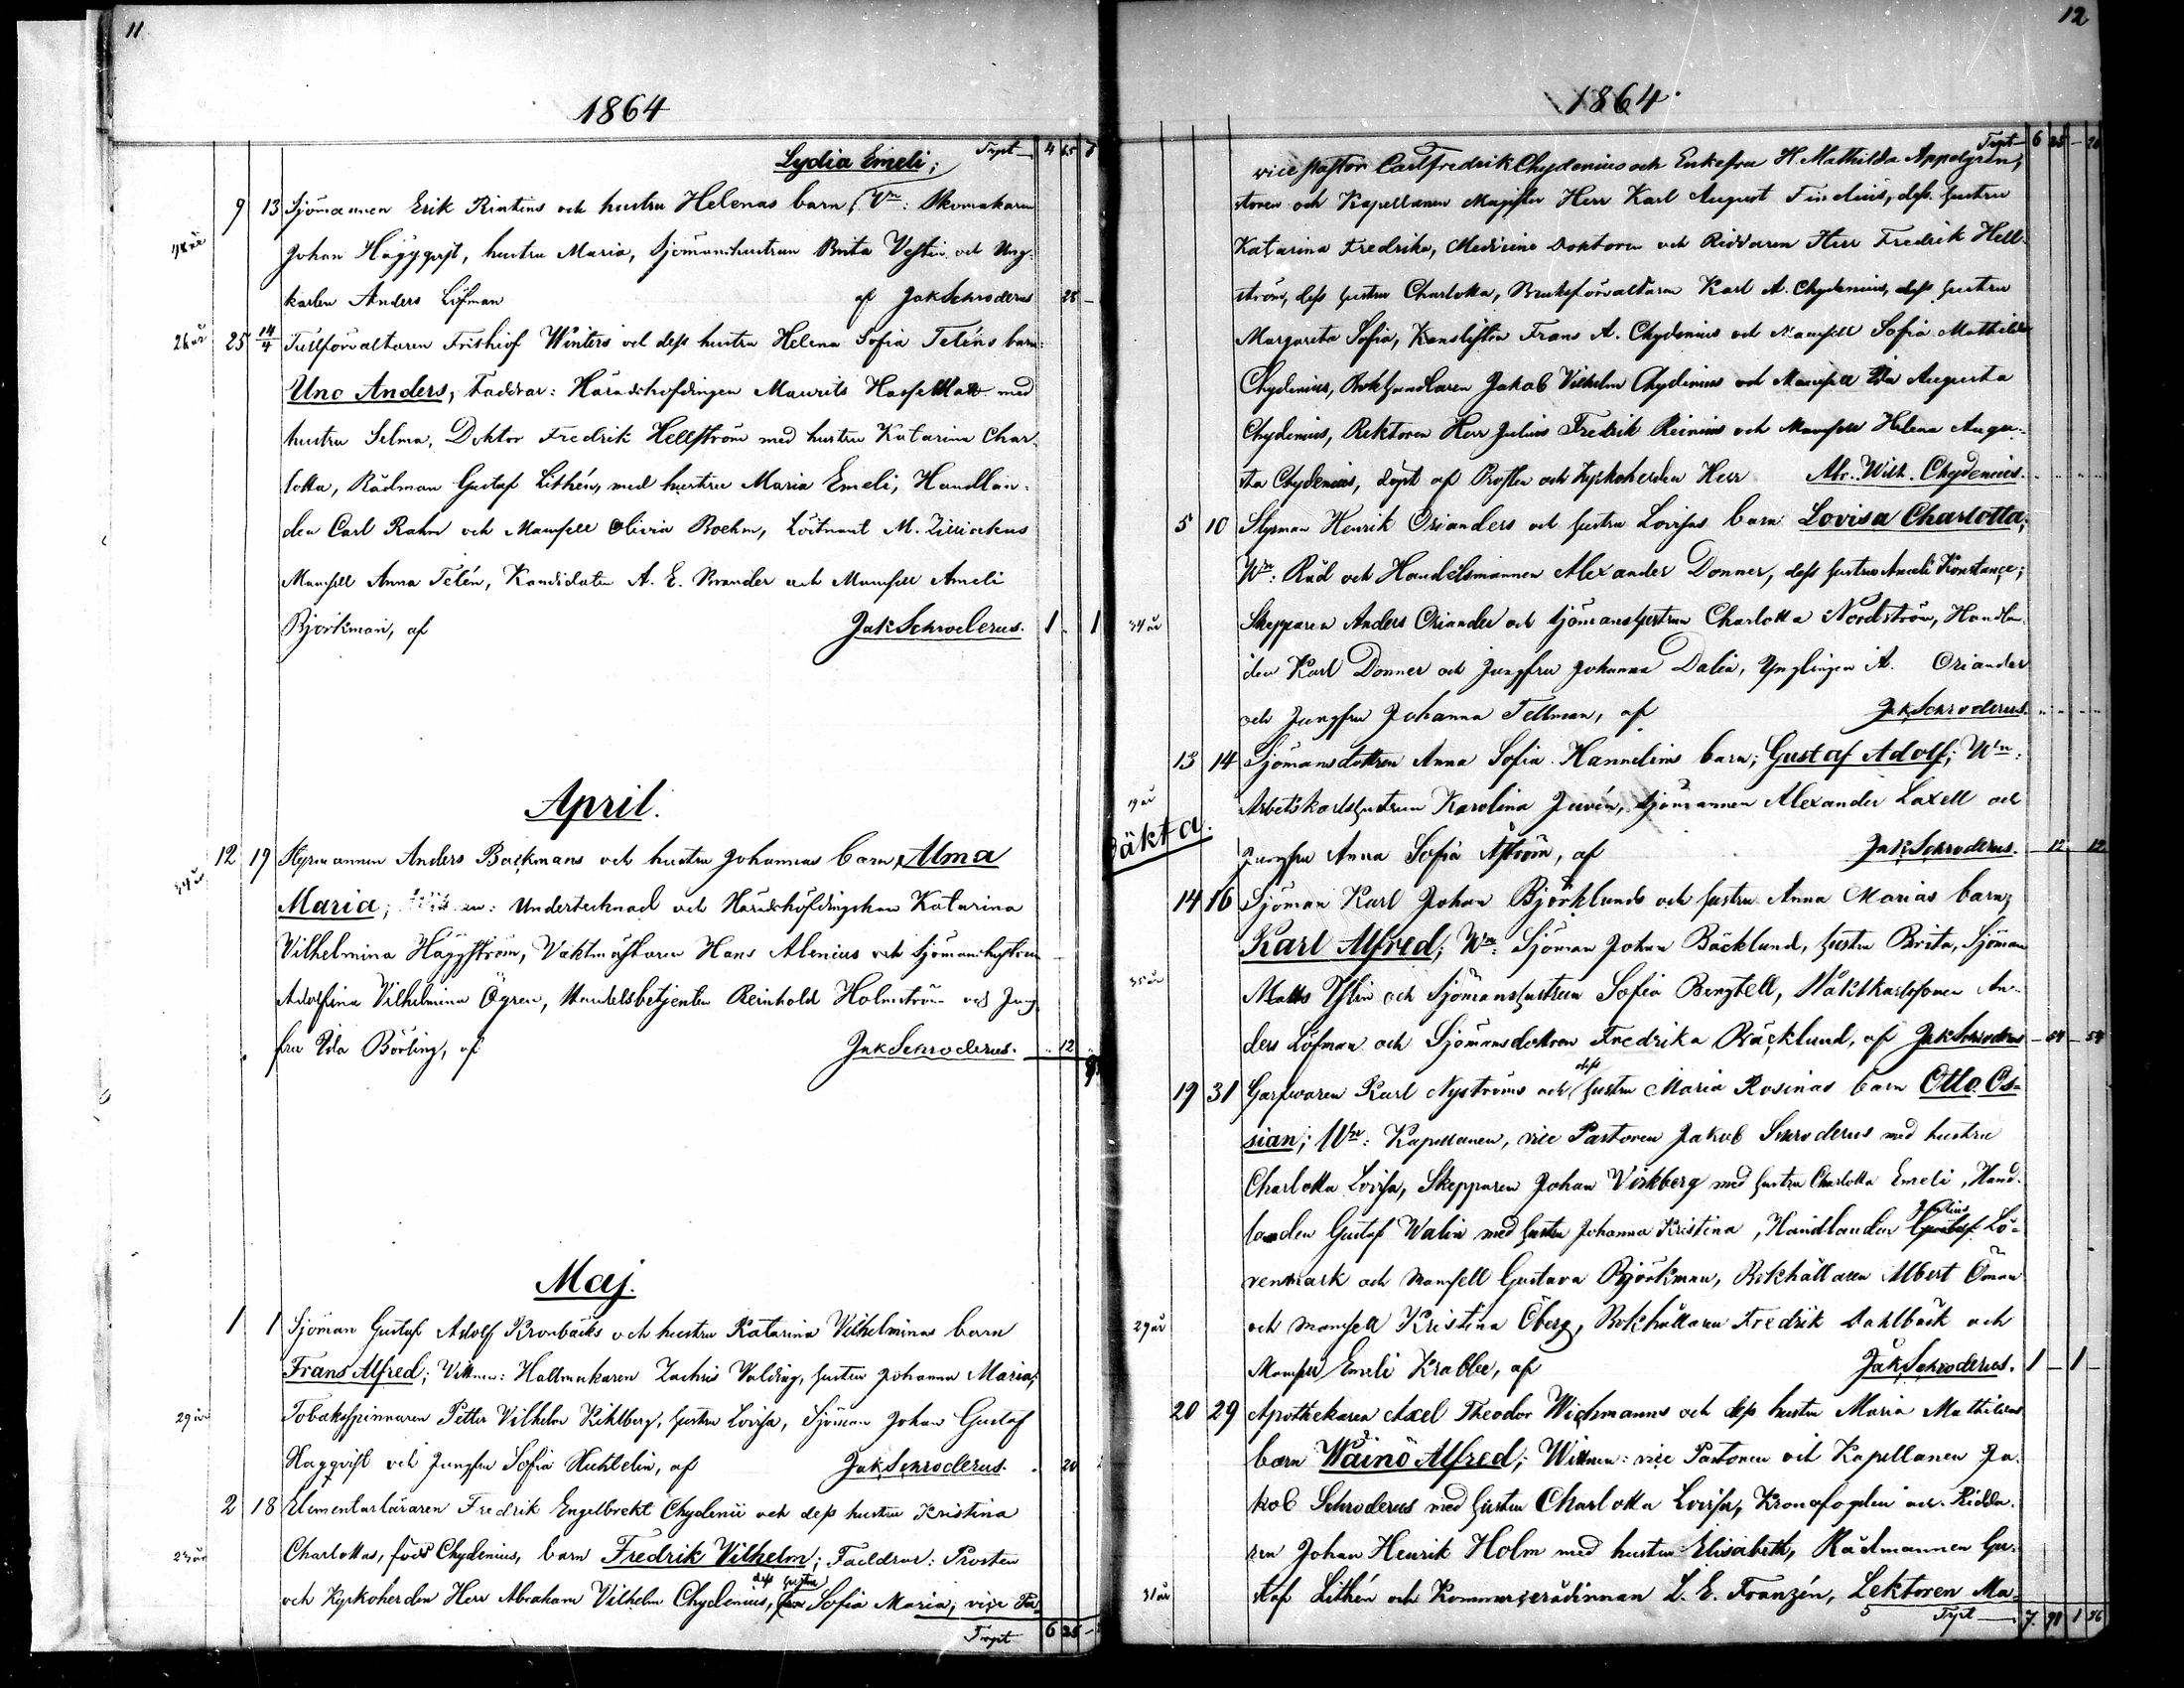 11
1864
Lydia Emeli; Trpt 4 65
9 13 Sjömannen Erik Rintins och hustru Helenas barn, Vn: Skomakaren
Johan Häggqvist, hustru Maria, Sjömanshustrun Brita Vestin och Ung-
karlen Anders Löfman af Jak Schroderus 28 –
26 år 25 14/4 Tullförvaltaren Frithiof Winters och dess hustru Helena Sofia Teléns barn:
Uno Anders, Faddrar: Häradshöfdingen Maurits Hasselblatt med
hustru Selma, Doktor Fredrik Hellström med hustru Katarina Char-
lotta, Rådman Gustaf Lithén, med hustru Maria Emeli, Handlan-
den Carl Rahm och Mamsell Olivia Boehm, Löitnant M. Zilliackus
Mamsell Anna Telén, Kandidaten A. E. Brander och Mamsell Ameli
Björkman, af Jak Schroderus. 1 1
April.
12 19 Styrmannen Anders Backmans och hustru Johannas barn, Alma
Maria; Undertecknad och Häradshöfdingskan Katarina
Vilhelmina Häggström, Vaktmästaren Hans Alenius och Sjömanshustrun
Adolfina Vilhelmina Ögren, Handelsbetjenten Reinhold Holmström och Jung-
fru Ida Böoling, af Jak Schroderus. 12
Maj.
1 1 Sjöman Gustaf Adolf Kronbäcks och hustru Katarina Vilhelminas barn
Frans Alfred; Vittnen: Hattmakaren Zachris Valding, hustru Johanna Maria,
29 år Tobaksspinnaren Petter Vilhelm Kihlberg, hustru Lovisa, Sjöman Johan Gustaf
Hagqvist och Jungfru Sofia Huhtelin, af Jak Schroderus. 20
2 18 Elementarläraren Fredrik Engelbrekt Chydenii och dess hustru Kristina
23 år Charlottas, född Chydenius, barn Fredrik Vilhelm; Faddrar: Prosten
dess hustru
och Kyrkoherden Herr Abraham Vilhelm Chydenius, Sofia Maria, vice Pa-
Trpt 6 25 –
12
1864.
Trpt 6 25 – 20
vice pastor Carl Fredrik Chydenius och Enkefru H. Mathilda Appelgren,
storen och Kapellanen Magister Herr Karl August Findius, dess hustru
Katarina Fredrika, Medicine Doktoren och Riddaren Herr Fredrik Hell-
ström, dess hustru Charlotta, Bruksförvaltaren Karl A. Chydenius, dess hustru
Margareta Sofia, Kanslisten Frans A. Chydenius och Mamsell Sofia Mathilda
Chydenius, Bokhandlaren Jakob Vilhelm Chydenius och Mamsell Ida Augusta
Chydenius, Rektoren Herr Julius Fredrik Reinius och Mamsell Helena Augu-
sta Chydenius, döpt af Prosten och Kyrkoherden Herr Abr. Wilh. Chydenius.
5 10 Styrman Henrik Orianders och hustru Lovisas barn Lovisa Charlotta;
Wn: Råd och Handelsmannen Alexander Donner, dess hustru Ameli Konstance;
34 år Skepparen Anders Oriander och Sjömanshustrun Charlotta Nordström, Handlan-
den Karl Donner och Jungfru Johanna Dalin, Ynglingen A. Oriander
och Jungfru Johanna Tellman, af Jak Schroderus.
13 14 Sjömansdottren Anna Sofia Hannelins barn; Gustaf Adolf; Wn:
19 år Arbetskarlshustrun Karolina Juvén, Sjömannen Alexander Laxell och
äkta. Jungfru Anna Sofia Åström, af Jak Schroderus. – 12 – 12
14 16 Sjöman Karl Johan Björklunds och hustru Anna Marias barn;
Karl Alfred; Wn: Sjöman Johan Bäcklund, hustru Brita, Sjöman
35 år Matts Yllin och Sjömanshustrun Sofia Bengtell, Våktkarlssonen An-
ders Löfman och Sjömansdottren Fredrika Bäcklund, af Jak Schroderus – 54 – 54
dess
19 31 Garfvaren Karl Nyströms och hustru Maria Rosinas barn Otto Os-
sian; Wn: Kapellanen, vice Pastoren Jakob Schroderus med hustru
Charlotta Lovisa, Skepparen Johan Wirkberg med hustru Charlotta Emeli, Hand-
landen Gustaf Walin med hustru Johanna Kristina, Handlanden Julius Lö-
venmark och Mamsell Gustava Björkman, Bokhållaren Albert Öman
29 år och Mamsell Kristina Öberg, Bokhållaren Fredrik Dahlbäck och
Mamsell Emeli Krabbe, af Jak Schroderus. 1 – 1 –
20 29 Apothekaren Axel Theodor Wichmanns och dess hustru Maria Mathildas
barn Wäinö Alfred; Wittnen: vice Pastoren och Kapellanen Ja-
kob Schroderus med hustru Charlotta Lovisa, Kronofogden och Ridda-
ren Johan Henrik Holm med hustru Elisabeth, Rådmannen Gu-
31 år staf Lithén och Kommerserådinnan L. E. Franzén, Lektoren Ma-
5 Trpt 7. 91 1 86